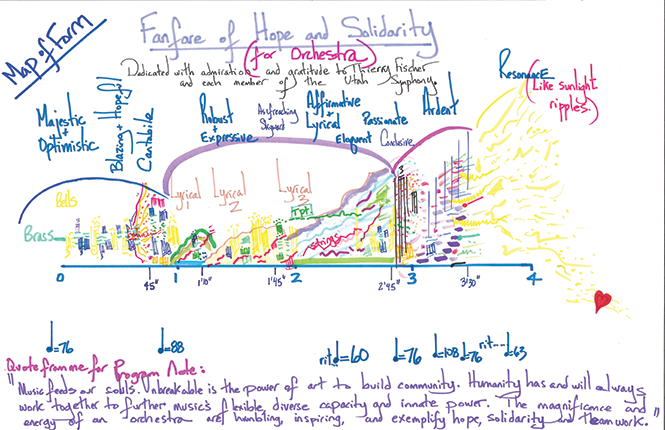 Map of Form
Fanfare of Hope and Solidarity
(for Orchestra)
Dedicated with admiration and gratitude to Thierry Fischer
and each member of the Utah Symphony.
Majestic + Optimistic
Blazing + Hopeful
Cantabile
Robust + Expressive
As if reaching skyward
Affirmative + Lyrical
Eloquent
Passionate
Conclusive
Ardent
Resonance
(Like sunlight ripples.)
Bells
Brass
Lyrical 1
Lyrical 2
Lyrical 3
Tpt.
strings
3
0 45" 1 1'10" 1'45" 2 2'45" 3 3'30" 4
♩=76 ♩=88 rit. ♩=60 ♩=76 ♩=108 ♩=76 rit--- ♩=63
Quote from me for Program Note:
"Music feeds our souls. Unbreakable is the power of art to build community. Humanity has and will always
work together to further music's flexible, diverse capacity and innate power. The magnificence and
energy of an orchestra are humbling, inspiring, and exemplify hope, solidarity and teamwork."